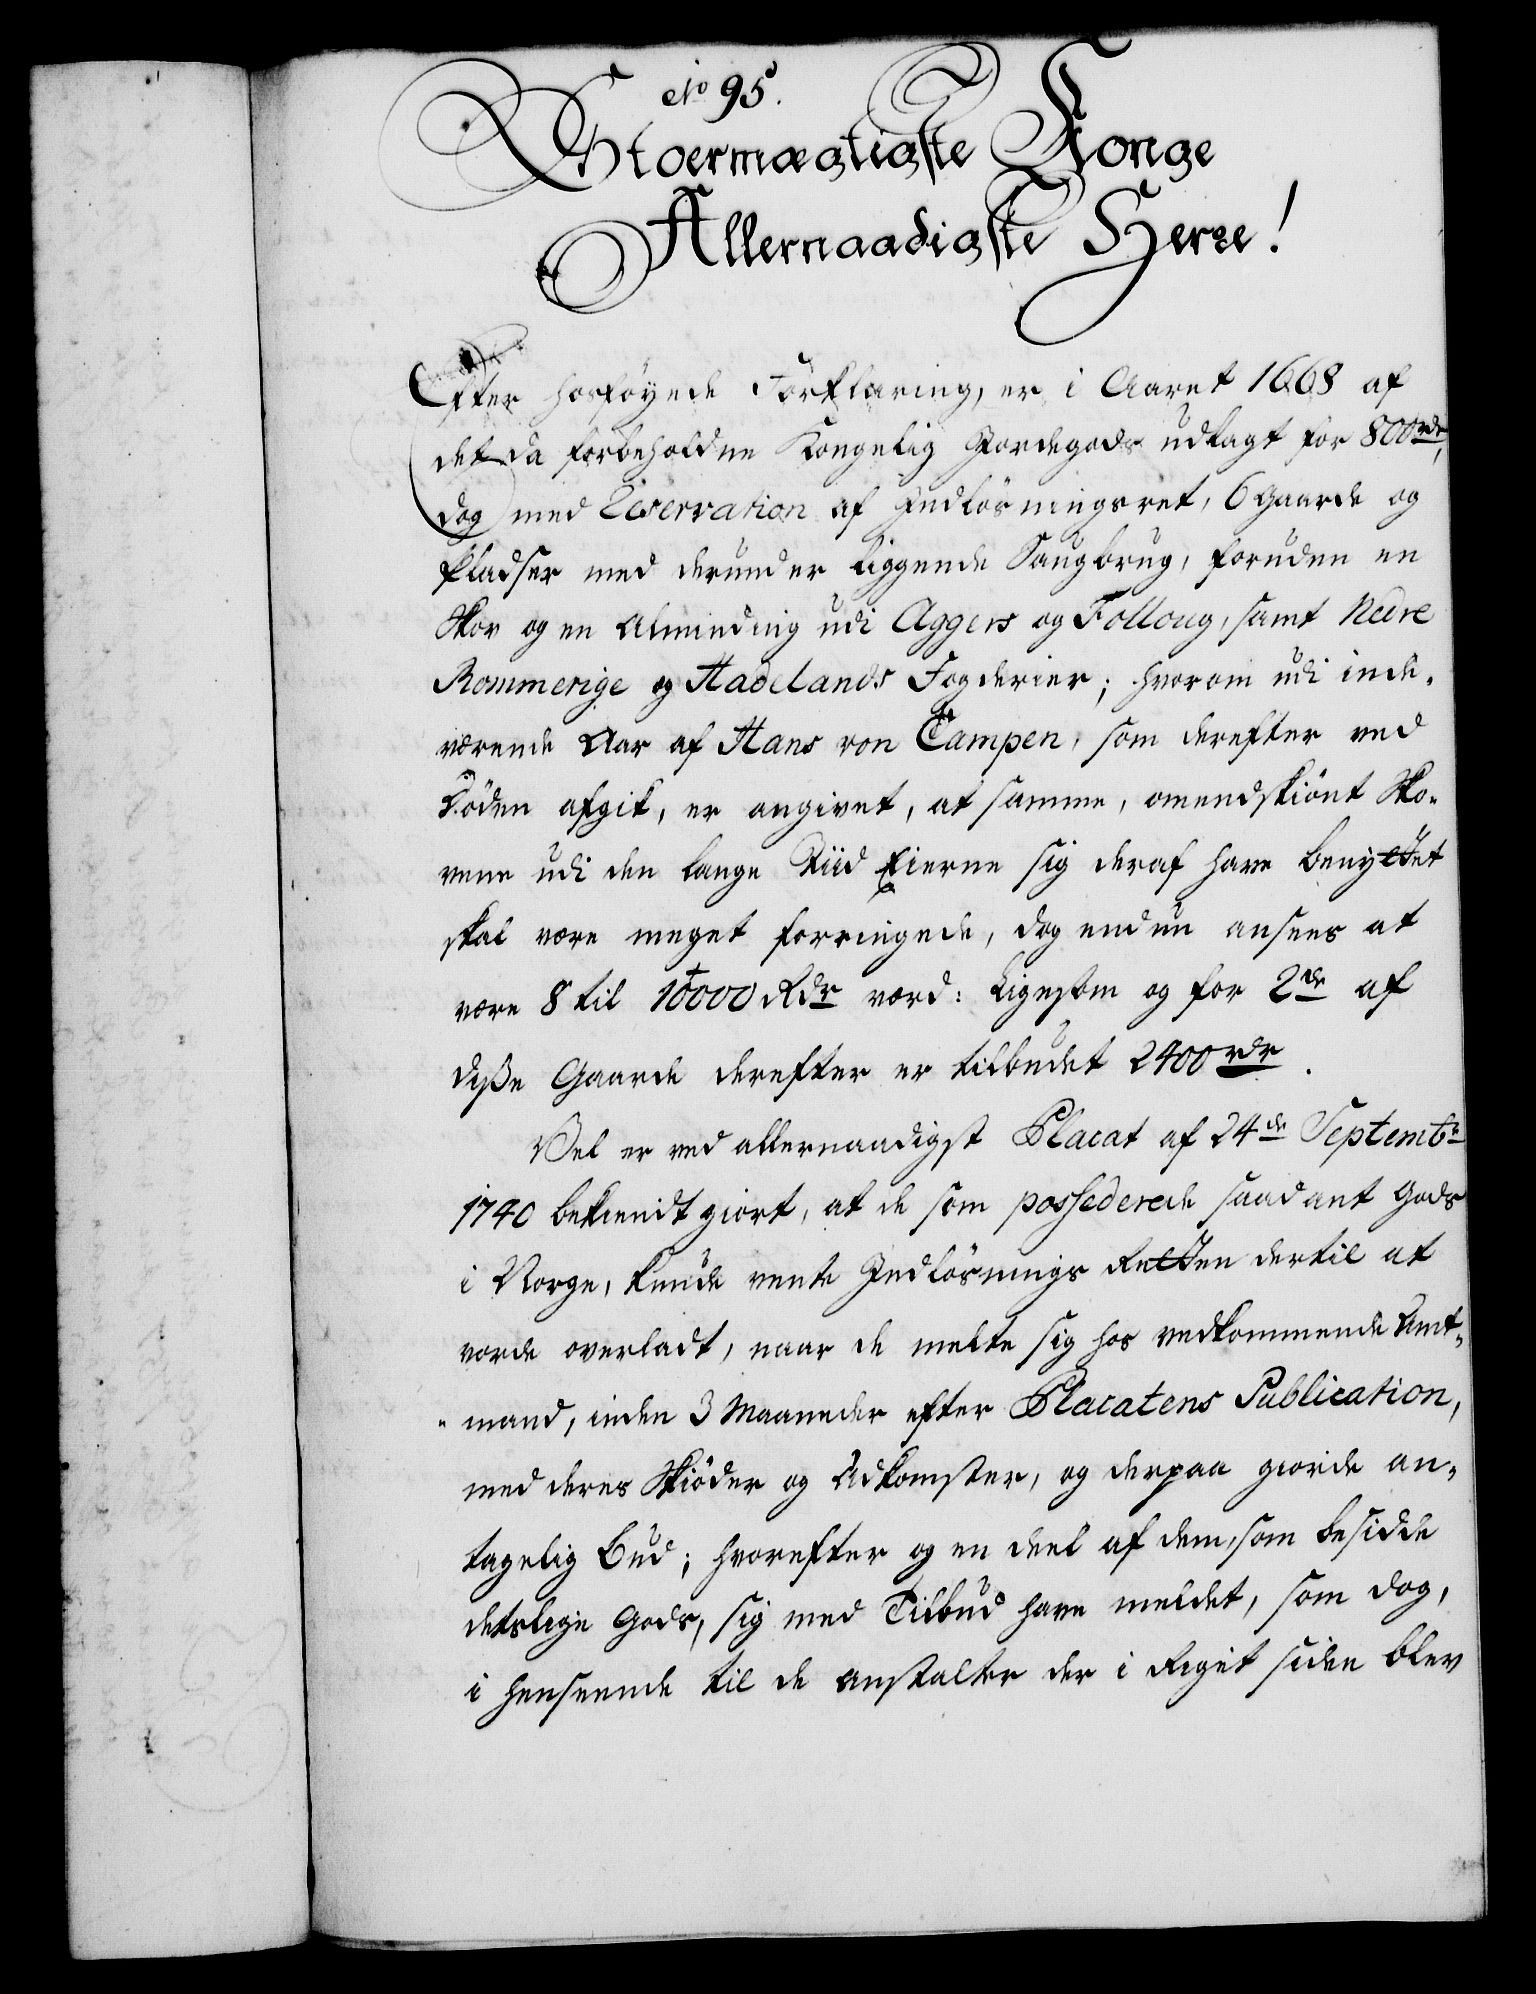 No 95.
Stoermægtigste Konge
Allernaadigste Herre!
Efter hosføyede Forklaring, er i Aaret 1668 af
det da forbeholdne Kongelig Jordegods udlagt for 800 rdr,
dog med Reservation af Indløsningsret, 6 Gaarde og
Pladser med derunder liggende Saugbrug, foruden en
Skov og en Alminding udi Aggers og Folloug, samt Nedre
Rommerige og Hadelands Fogderier; hvorom udi inde-
værende Aar af Hans von Campen, som derefter ved
Døden afgik, er angivet, at samme, omendskiönt Sko-
vene udi den lange Tiid Eierne sig deraf have benyttet
skal være meget forringede, dog endnu ansees at
være 8 til 10000 Rdr værd: Ligesom og for 2de af
diße Gaarde derefter er tilbudet 2400 rdr.
Vel er ved allernaadigst Placat af 24de Septembr
1740 bekiendtgiort, at de som possederede saadant Gods
i Norge, kunde vente Indløsnings Retten dertil at
vorde overladt, naar de meldte sig hos vedkommende Amt-
mand, inden 3 Maaneder efter Placatens Publication,
med deres Skiøder og Adkomster, og derpaa giorde an-
tagelig Bud; hvorefter og en deel af dem, som besidde
detslige Gods, sig med Tilbud have meldet, som dog,
i henseende til de Anstalter der i Riget siden blev